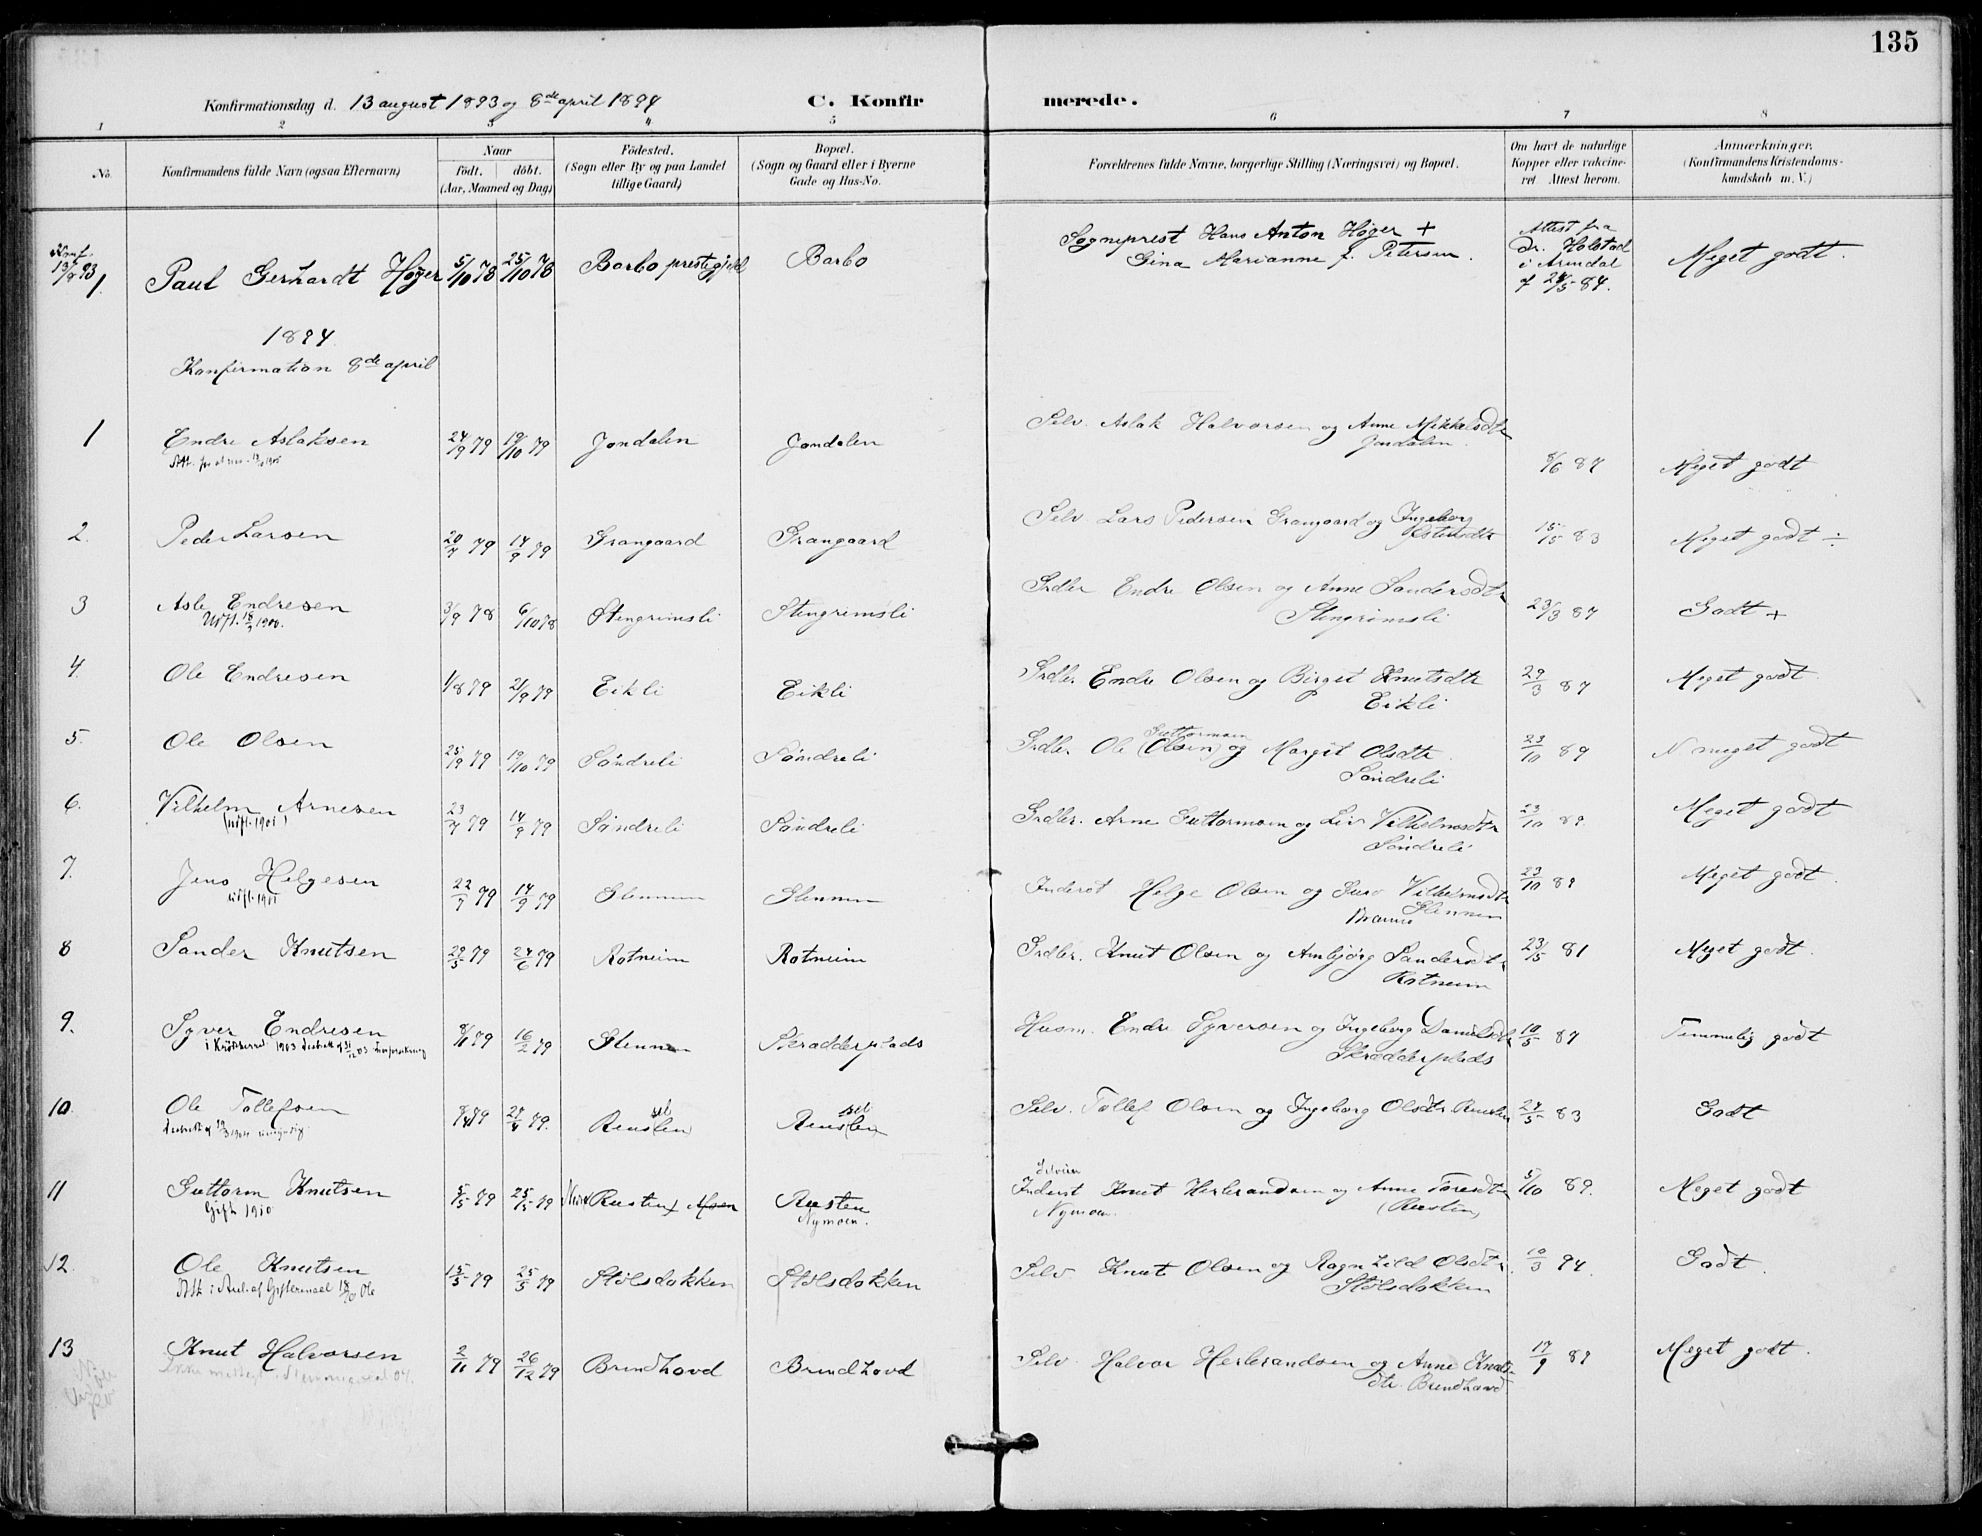 135
Konfirmationsdag d. 13 august 1893 og 8de april 1894 C. Konfirmerede.
1 2 3 4 5 6 7 8
No. Konfirmandens fulde Navn (ogsaa Efternavn) Naar födt. döbt. (Aar, Maaned og Dag) Födested. (Sogn eller By og paa Landet tillige Gaard) Bopæl. (Sogn og Gaard eller i Byerne Gade og Hus-No. Forældrenes fulde Navne, borgerlige Stilling (Næringsvei) og Bopæl. Om havt de naturlige Kopper eller vakcineret. Attest herom. Anmærkninger. (Konfirmandens Kristendomskundskab m. V.)
Konf. 13/8 93
1 Paul Gerhardt Høyer 5/10 78 25/10 78 Barbo prestegjeld Barbo Sogneprest Hans Anton Høyer + Gina Marianne f. Petersen. Attest fra Dr. Holstad i Arendal af 24/5 84. Meget godt.
1894
Konfirmation 8de april
1 Endre Aslaksen 24/9 79 19/10 79 Jondalen Jondalen Selv. Aslak Halvorsen og Anne Mikkelsdtr Jondalen. 8/6 87 Meget godt
2. Peder Larsen 20/7 79 14/9 79 Grangaard Grangaard Selv. Lars Pedersen Grangaard og Ingeborg 15/5 83 Meget godt ÷
3 Asle Endresen 3/9 78 6/10 78 Stengrimsli Stengrimsli Grdbr Endre Olsen og Anne Sandersdtr Stengrimsli 23/3 87 Godt +
Utfl. 18/7 1900.
4. Ole Endresen 1/8 79 21/9 79 Eikli Eikli Grdbr. Endre Olsen og Birgit Knutsdtr Eikli 29/3 87 Meget godt.
5. Ole Olsen 25/9 79 19/10 79 Søndreli Søndreli Grdbr. Ole (Olsen) Guttormsen og Margit Olsdtr. Søndreli 23/10 89 N. meget godt
6. Vilhelm Arnesen 23/7 79 14/9 79 Søndreli Søndreli Grdbr. Arne Guttormsen og Liv Vilhelmsdtr Søndreli 23/10 89. Meget godt
(utfl. 1901)
7. Jens Helgesen 22/7 79 14/9 79 Glennen Glennen Inderst Helge Olsen og Guro Vilhelmsdtr Glennen 23/10 89 Meget godt.
utfl. 1901
8 Sander Knutsen 29/5 79 24/6 79 Rotneim Rotneim Grdbr. Knut Olsen og Ambjørg Sandersdtr Rotneim 23/5 81 Meget godt.
9. Syver Endresen 8/1 79 16/2 79 Glennen Skradderplads Husm. Endre Syversen og Ingeborg Danielsdtr Skradderplads 10/5 87 Temmelig godt
10. Ole Tollefsen 8/4 79 27/4 79. Ruuslen Ruuslen Selv. Tollef Olsen og Ingeborg Olsdtr. 24/5 83 Godt
11 Guttorm Knutsen 5/5 79 25/5 79 (Rusten) Moen Rusten Nymoen. Inderst Knut Herbrandsen og Anne Toresdtr (Rusten) Nymoen. 5/10 89. Meget godt
Gift 1910
12. Ole Knutsen 15/5 79 25/5 79 Stølsdokken Stølsdokken Selv Knut Olsen og Ragnhild Olsdtr. Stølsdokken 10/3 94. Godt.
13 Knut Halvorsen 2/11 79 26/12 79 Brendhovd Brendhovd Selv. Halvor Herbrandsen og Anne Knutsdtr. Brendhovd 17/9 89 Meget godt.